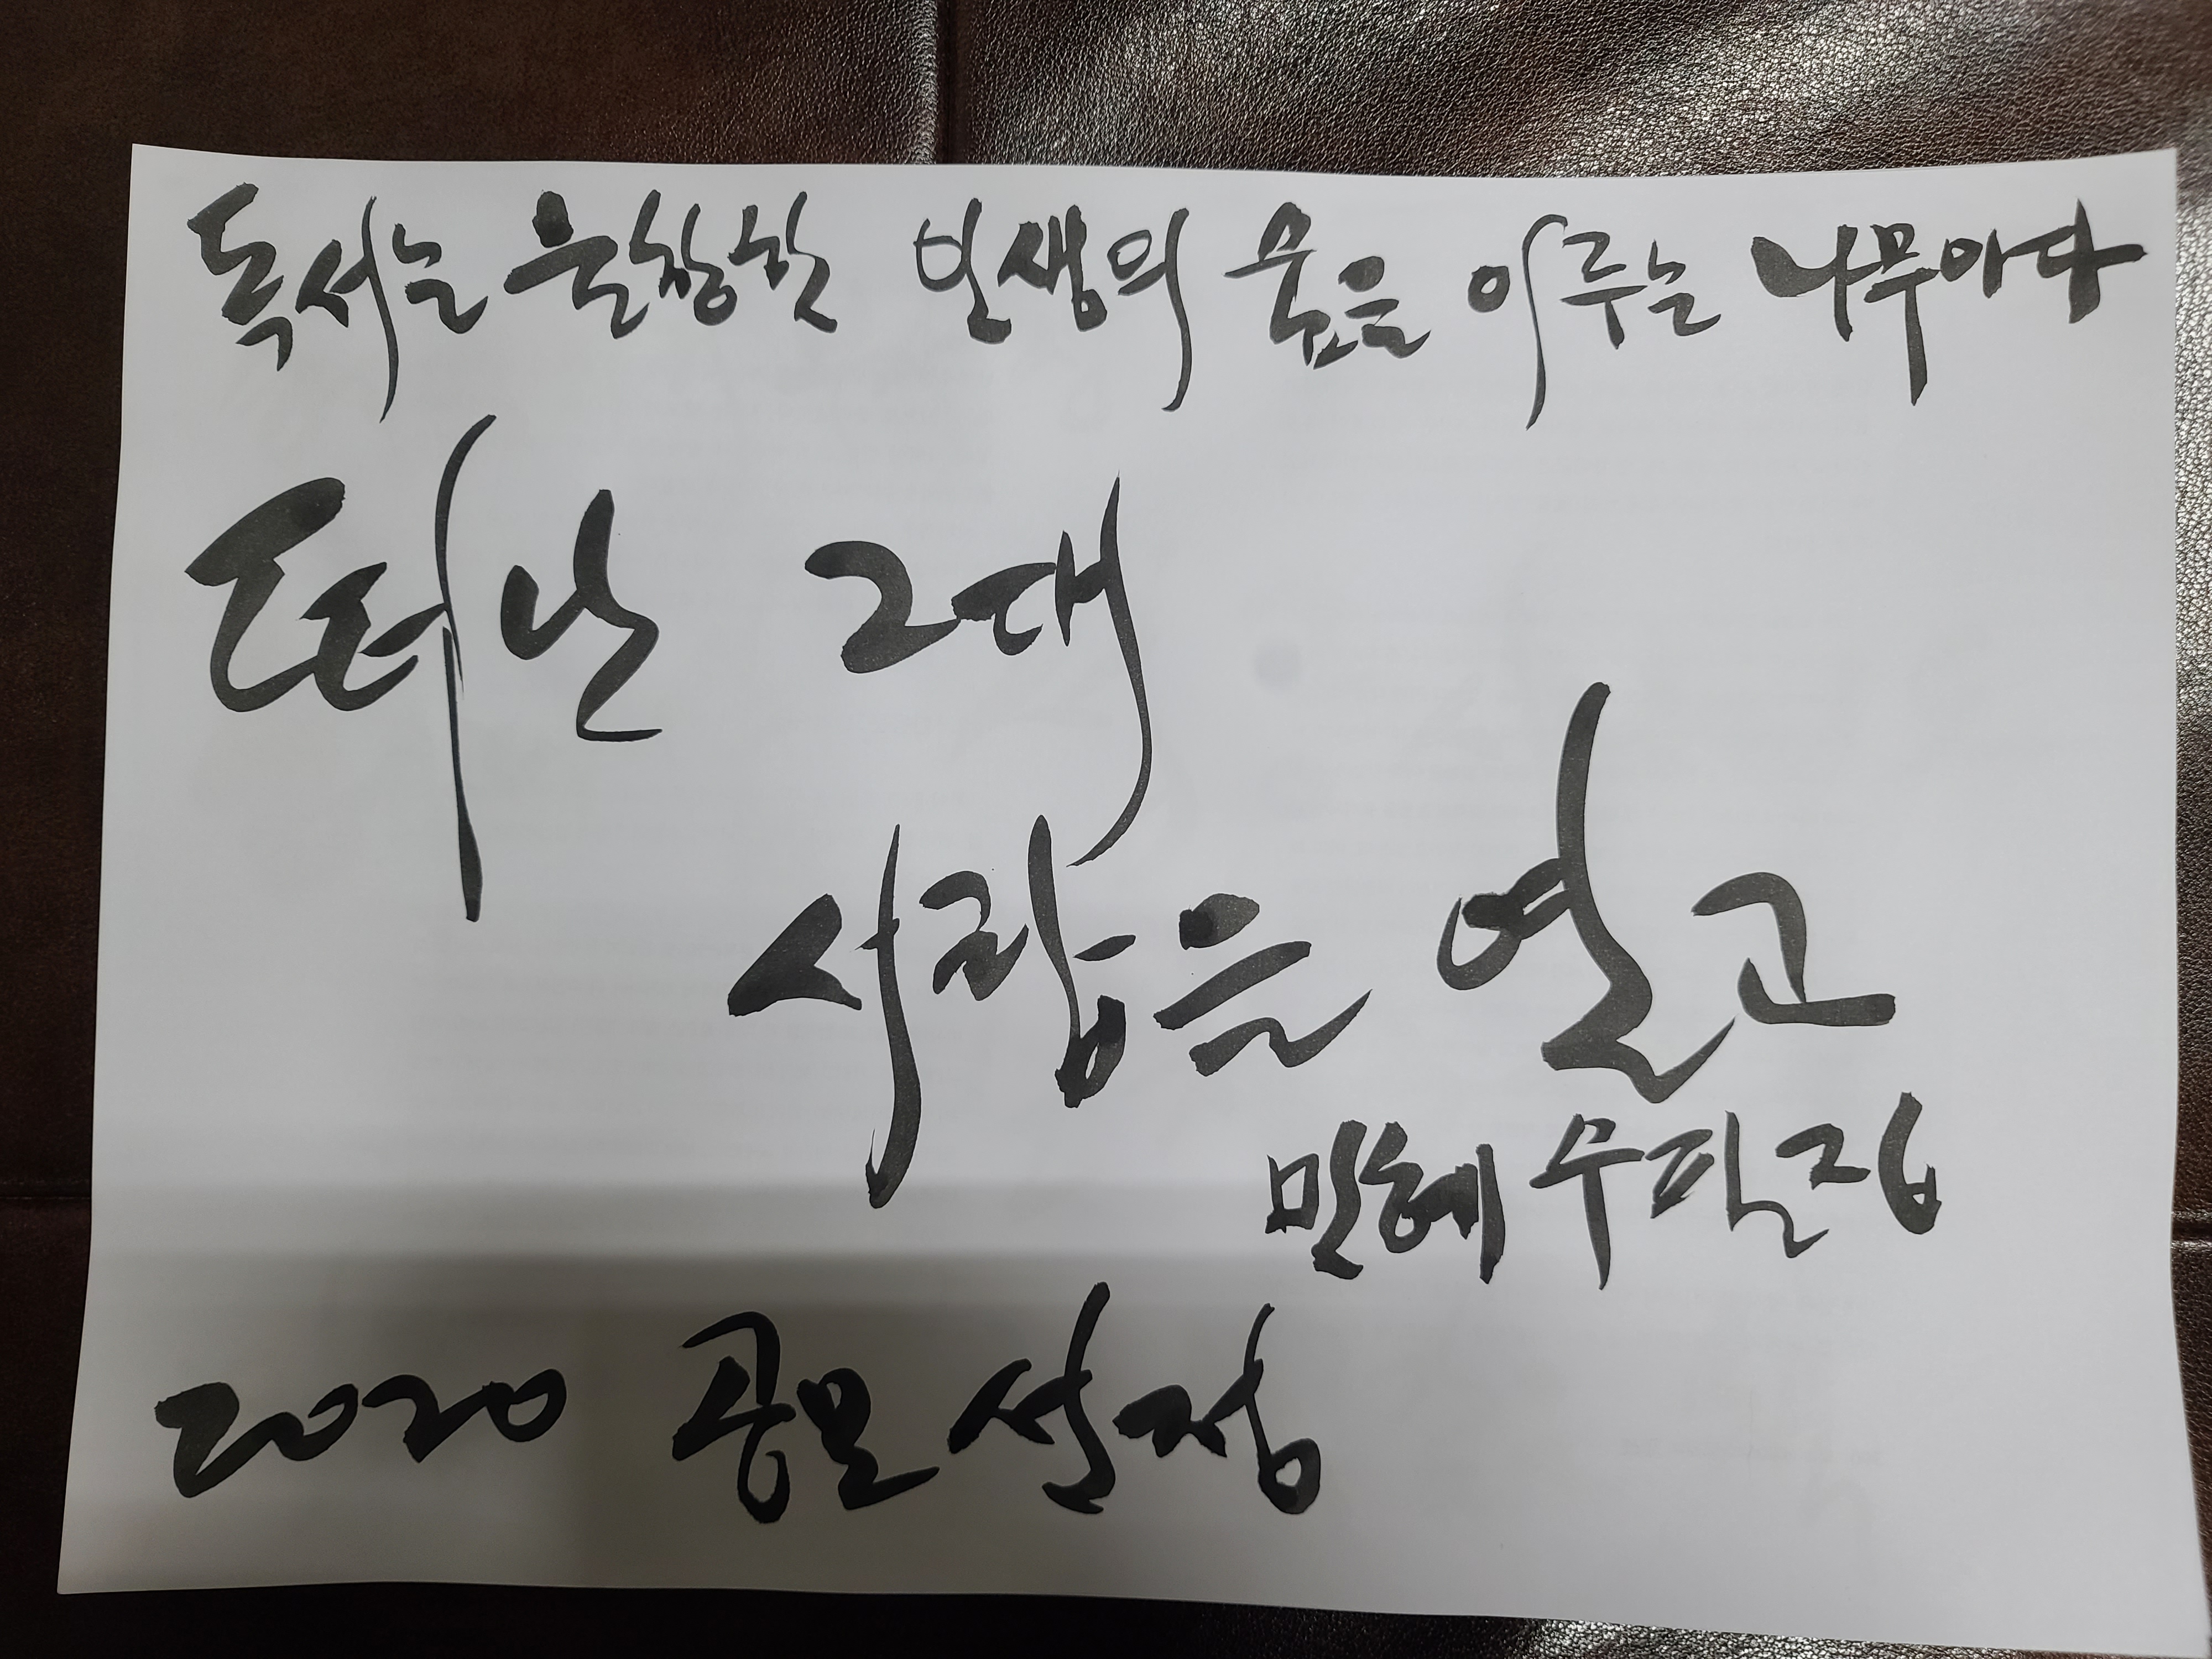 독서는 울창한 인생의 숲을 이루는 나무이다
떠난 그대
서랍을 열고
민혜 수필집
2020 공모 선정